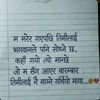 म मरेर गएपछि तिमीलाई
भगवानले पनि सोध्ने छ,
कहाँ गयो त्यो मान्छे
जो म सँग आएर बारम्बार
तिमीलाई नै माग्ने गर्थियो माया..